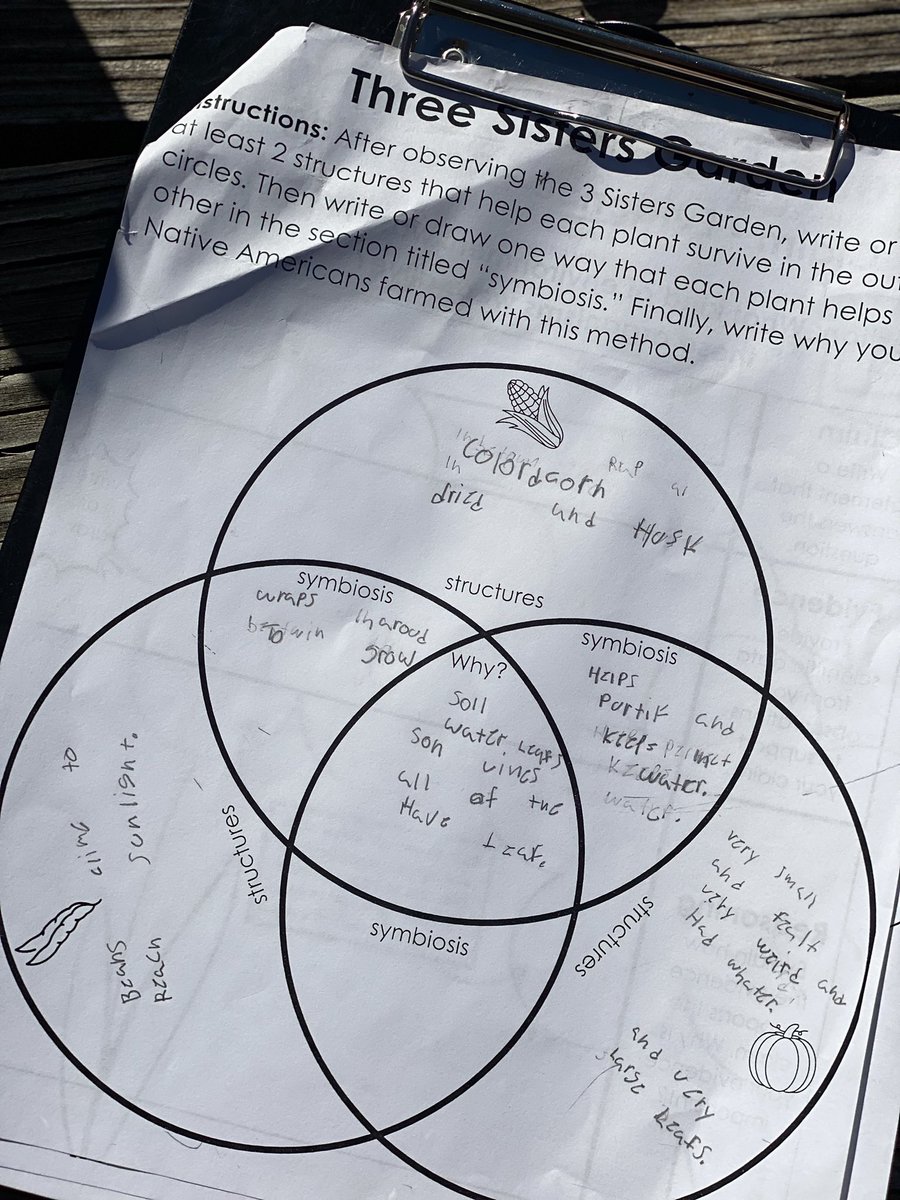 Three Sisters Garden
structions: After observing the 3 Sisters Garden, write or
at least 2 structures that help each plant survive in the out
circles. Then write or draw one way that each plant helps
other in the section titled “symbiosis.” Finally, write why you
Native Americans farmed with this method.
In
Colord corn
drizd and Husk
structures
symbiosis
wraps tharood
To grow
symbiosis
Helps
Portik and
Keeps
water.
water.
Why?
Soil
water Leafs
Son vines
all of the
Have
structures
cling to
sunlight.
Beans
Reach
symbiosis
structures
very small
and fealt
very weird and
Had whater.
and very
large Leafs.